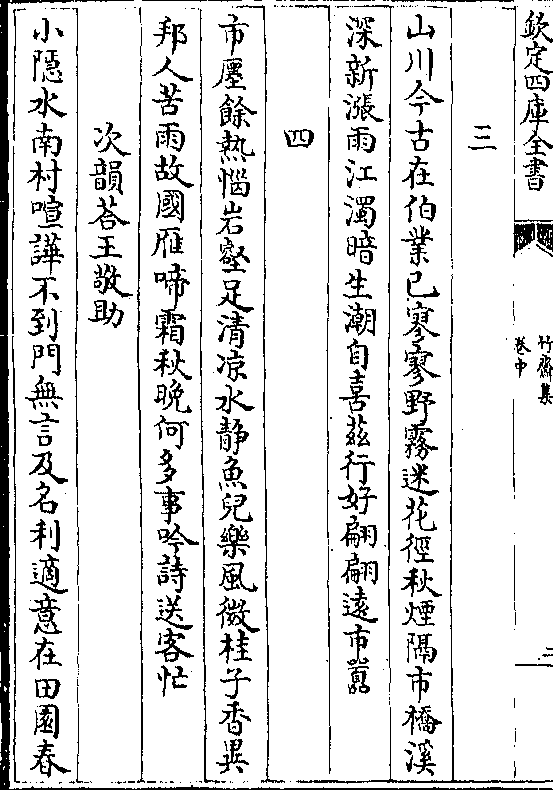 欽定四庫全書
竹齋集
卷中
三
山川今古在伯業已寥寥野霧迷花徑秋煙隔市橋溪
深新漲雨江濁暗生潮自喜兹行好翩翩遠市嚣
四
市廛餘熱惱岩壑足清凉水静魚兒樂風微桂子香異
邦人苦雨故國雁啼霜秋晚何多事吟詩送客忙
次韻荅王敬助
小隱水南村喧譁不到門無言及名利適意在田園春